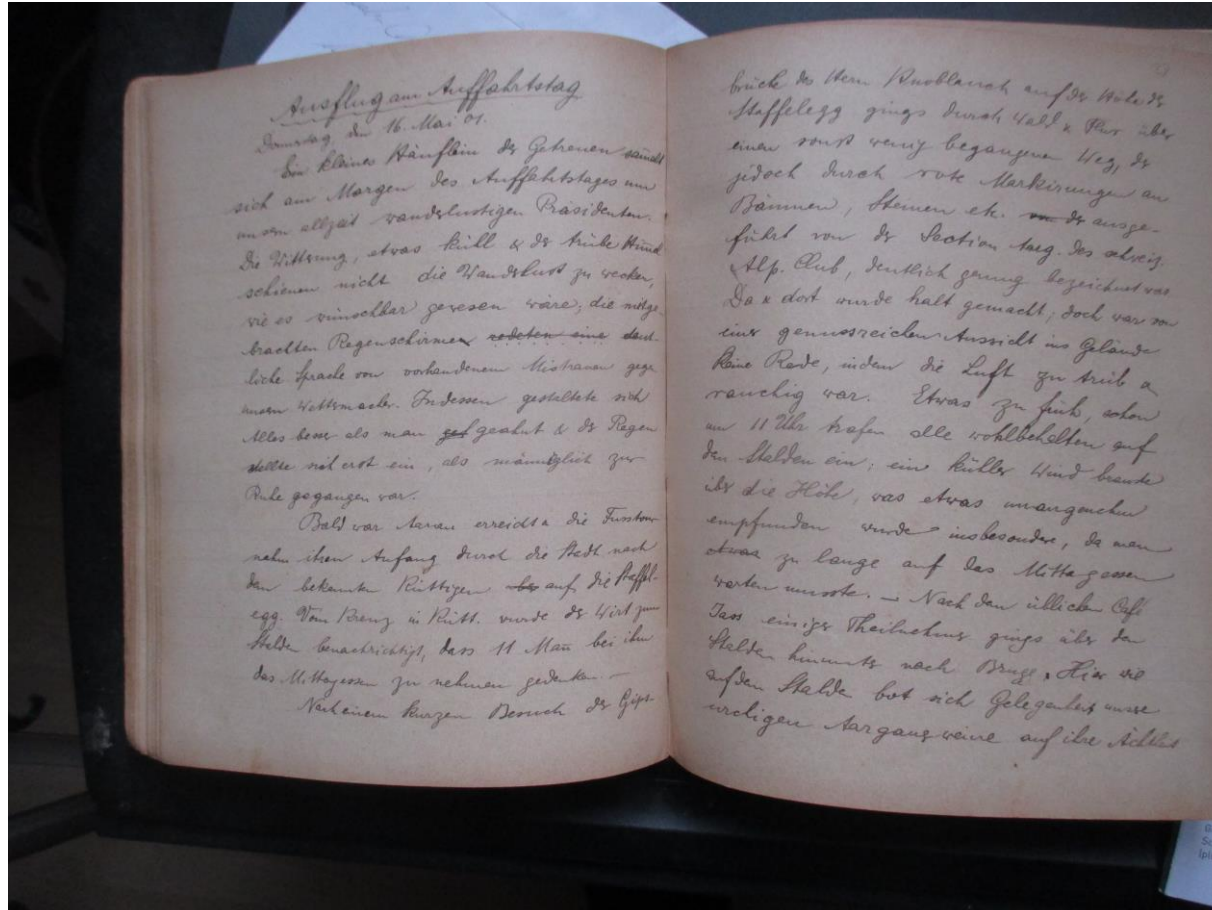 Ausflug am Auffahrtstag
Donnerstag, den 16. Mai 01.
Ein kleines Häuflein der Getreuen sam̄elt
sich am Morgen des Auffahrtstages um
unsern allzeit wanderlustigen Präsidenten.
Die Witterung, etwas kühl & der trübe Him̄el
schienen nicht die Wanderlust zu wecken,
wie es wünschbar gewesen wäre; die mitge-
brachten Regenschirmen redeten eine deut-
liche Sprache von vorhandenem Mistrauen gege
unsern Wettermacher. Indessen gestaltete sich
Alles besser als man geahnt & der Regen
stellte sich erst ein, als männiglich zur
Ruhe gegangen war.
Bald war Aarau erreicht & die Fusstour
nahm ihren Anfang durch die Stadt nach
dem bekannten Küttigen auf die Staffel-
egg. Vom Kreuz in Kütt. wurde der Wirt zum
Stalden benachrichtigt, dass 11 Man̄ bei ihm
das Mittagessen zu nehmen gedenken. —
Nach einem kurzen Besuch der Gips-
brüche des Herrn Knoblauch auf der Höhe der
Staffelegg gings durch Wald & Flur über
einen sonst wenig begangenen Weg, der
jedoch durch rote Markirungen an
Bäumen, Steinen etc. der ausge-
führt von der Section Aarg. des schweiz.
Alp. Club, deutlich genug bezeichnet war
Da & dort wurde halt gemacht; doch war von
einer genussreichen Aussicht ins Gelände
keine Rede, indem die Luft zu trüb &
rauchig war. Etwas zu früh, schon
um 11 Uhr trafen alle wohlbehalten auf
dem Stalden ein; ein kühler Wind brauste
über die Höhe, was etwas unangenehm
empfunden wurde insbesondere, da man
etwas zu lange auf das Mittagessen
warten musste. — Nach dem üblichen Café
Jass einiger Theilnehmer gings über den
Stalden hinunter nach Brugg. Hier wie
auf dem Stalden bot sich Gelegenheit unsre
urchigen Aargauerweine auf ihre Achtheit